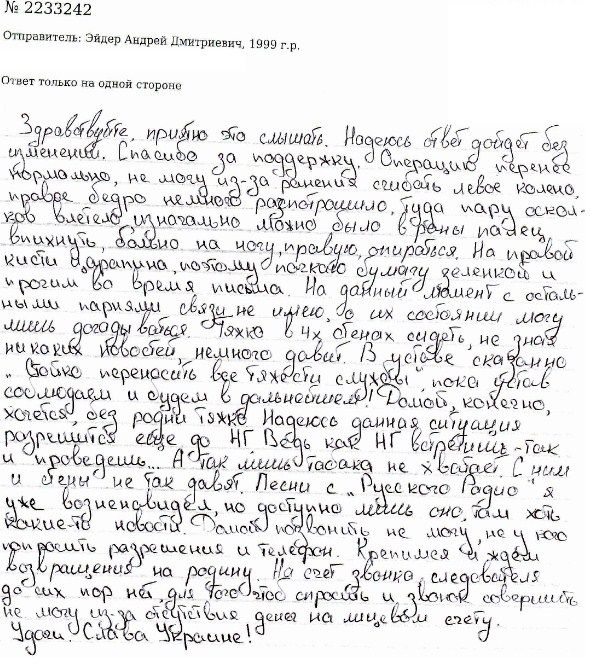 № 2233242
Отправитель: Эйдер Андрей Дмитриевич, 1999 г.р.
Ответ только на одной стороне
Здравствуйте, приятно это слышать. Надеюсь ответ дойдёт без
изменений. Спасибо за поддержку. Операцию перенес
нормально, не могу из-за ранения сгибать левое колено,
правое бедро немного распотрошило, туда пару оскол-
ков влетело, изначально можно было в раны палец
впихнуть, больно на ногу, правую, опираться. На правой
кисти царапина, поэтому пачкаю бумагу зеленкой и
прочим во время письма. На данный момент с осталь-
ными парнями связи не имею, о их состоянии могу
лишь догадываться. Тяжко в 4х стенах сидеть, не зная
никаких новостей, немного давит. В уставе сказанно
„Стойко переносить все тяжести службы", пока устав
соблюдаем и будем в дальнейшем! Домой, конечно,
хочется, без родни тяжко. Надеюсь данная ситуация
разрешится еще до НГ. Ведь как НГ встретишь - так
и проведешь... А так лишь табака не хватает. С ним
и стены не так давят. Песни с „Русского Радио" я
уже возненавидел, но доступно лишь оно, там хоть
какие-то новости. Домой позвонить не могу, не у кого
попросить разрешения и телефон. Крепимся и ждем
возвращения на родину. На счет звонка, следователя
до сих пор нет, для того чтоб спросить и звонок совершить
не могу из-за отсутствия денег на лицевом счету.
Удачи! Слава Украине!